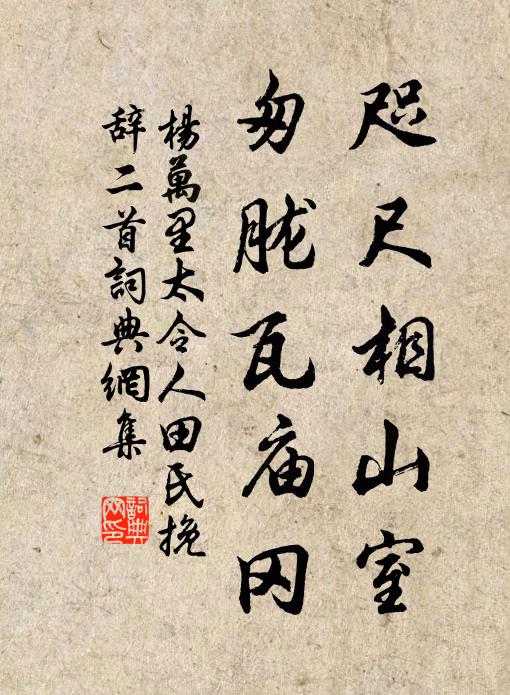 咫尺相山室
匆胧瓦庙冈
楊萬里太令人田氏挽
辞二首詞典網集
詞典
网印